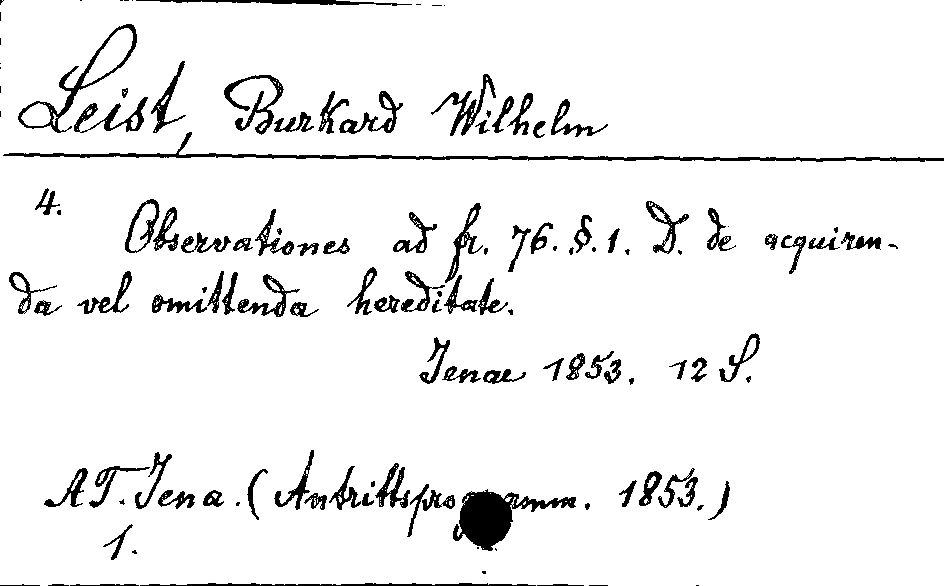 Leist, Burkard Wilhelm
4.
Observationes ad fr. 76. §. 1. D. de acquiren-
da vel omittenda hereditate.
Jenae 1853. 12 S.
AT. Jena. (Antrittsprogramm. 1853.)
1.